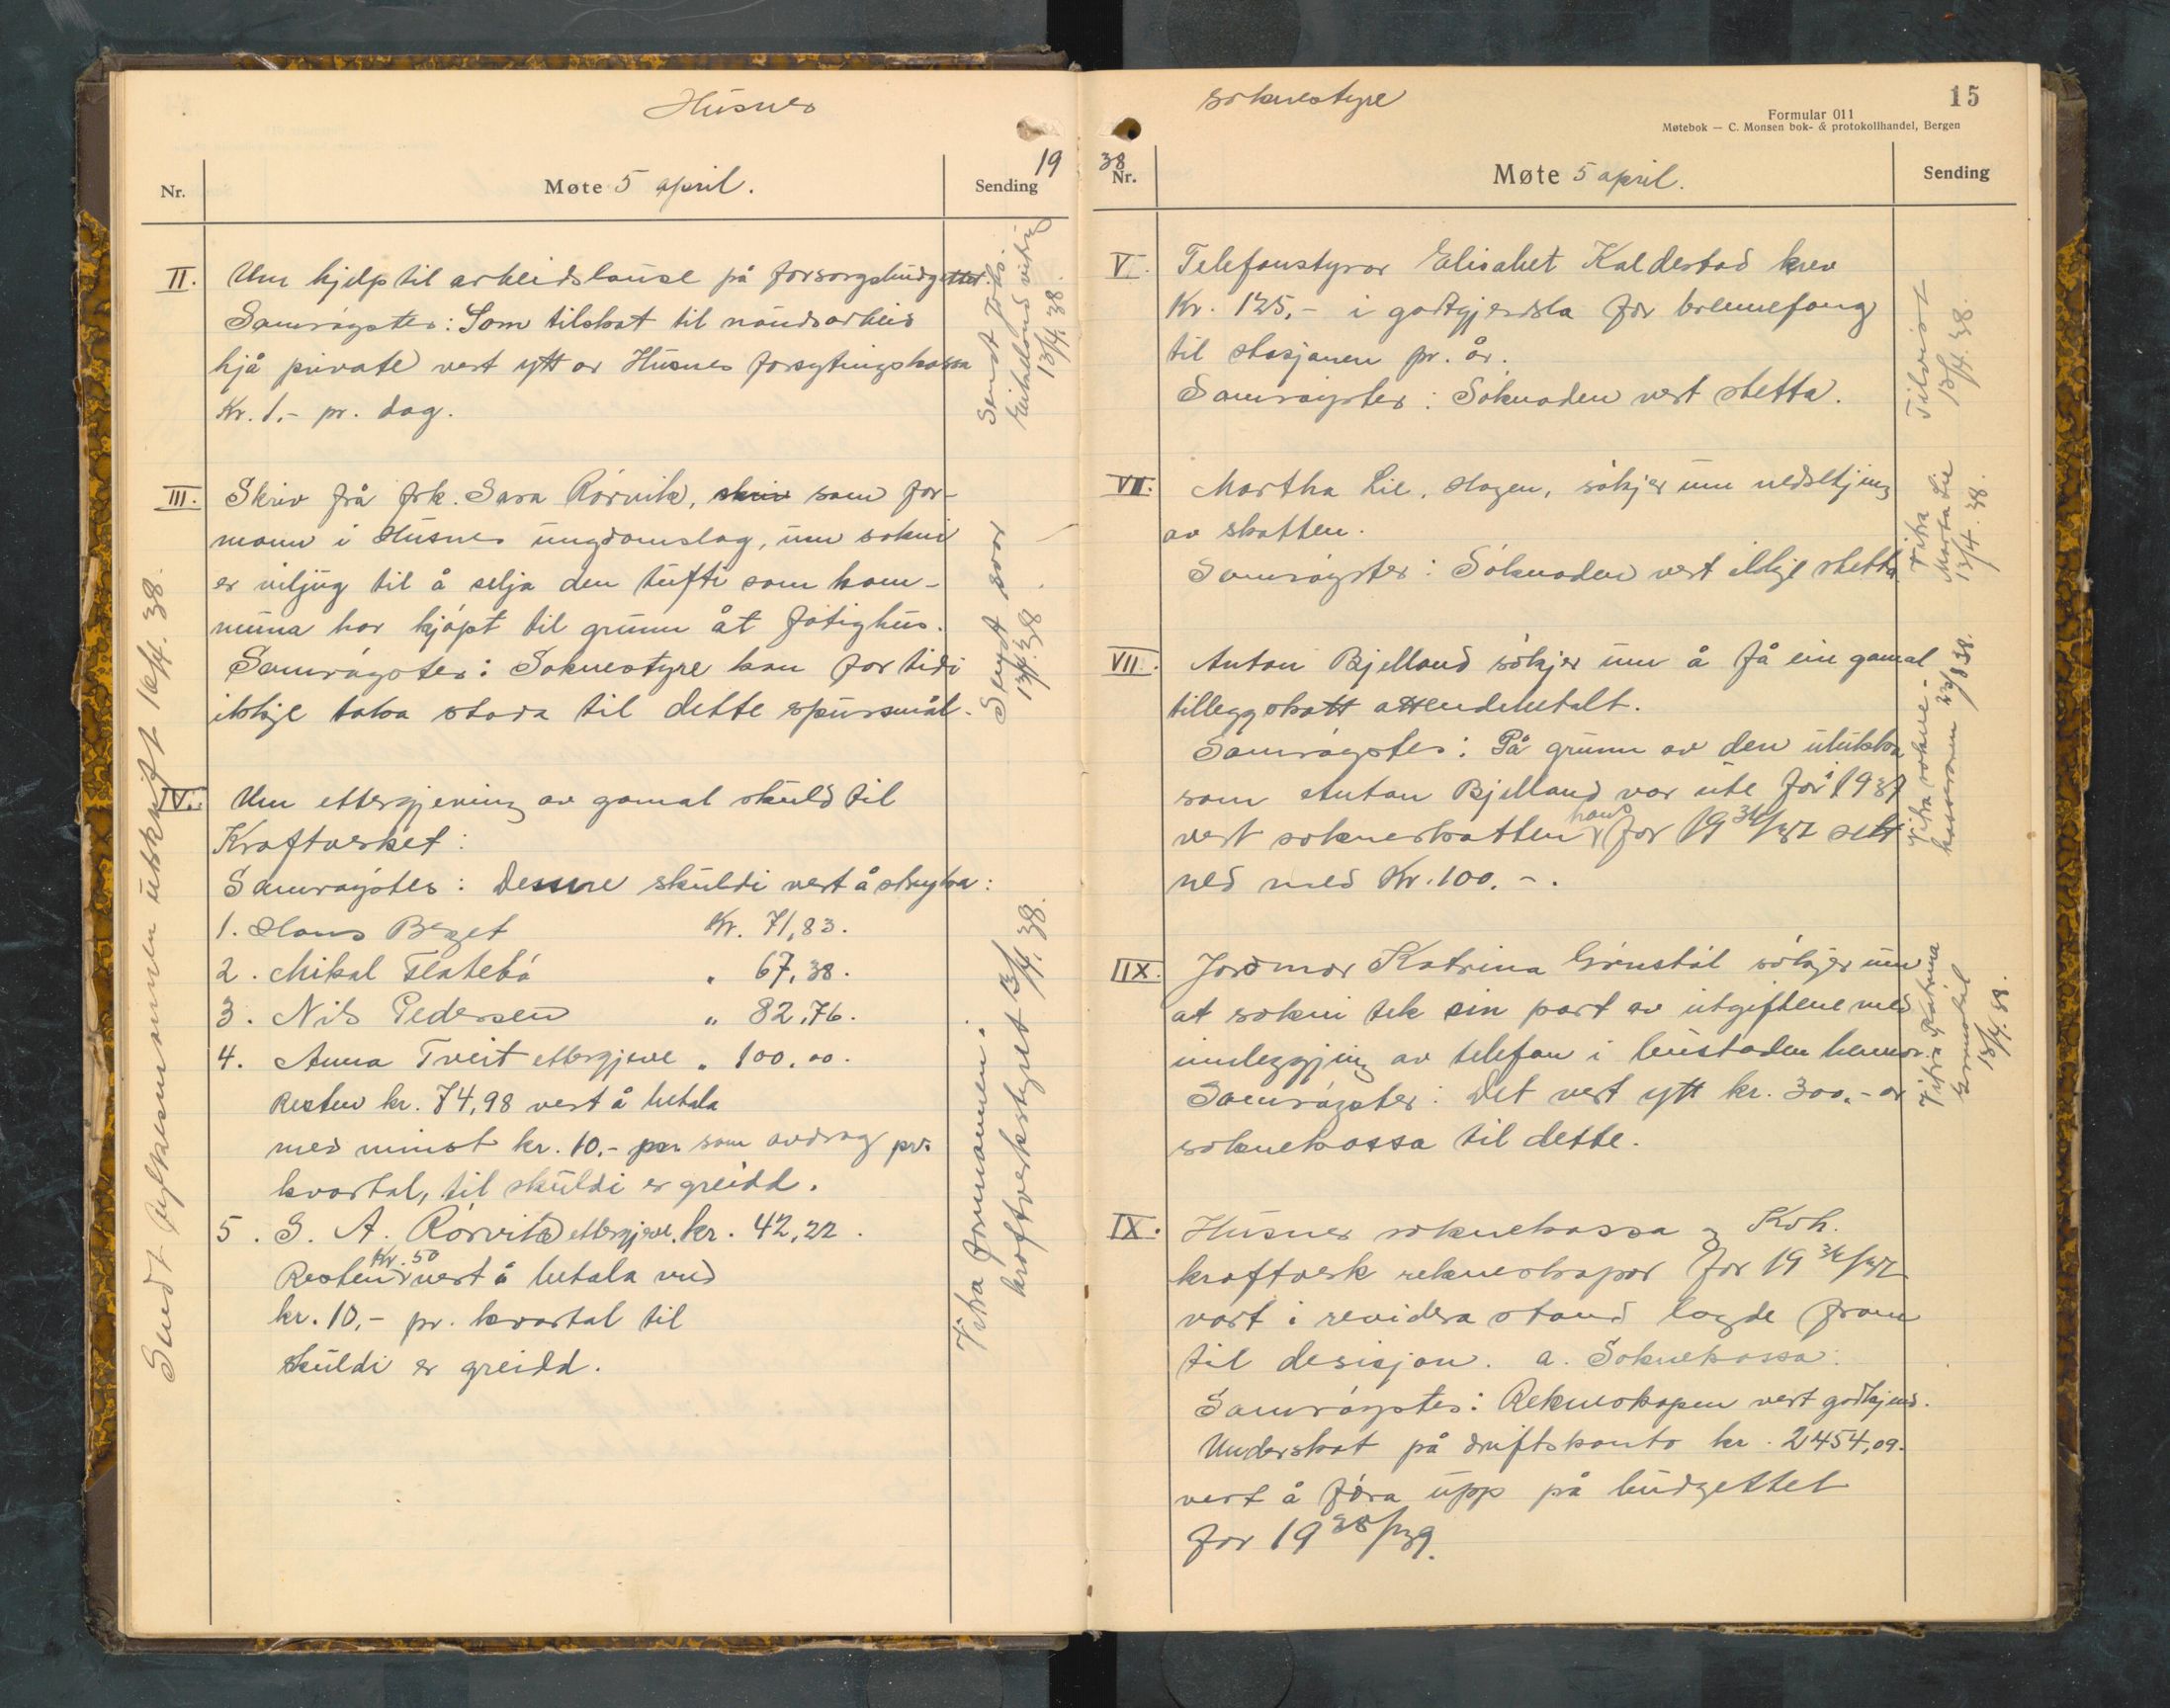 Husnes
19
Nr.
Møte 5 april.
Sending
II. Um hjelp til arbeidslause på forsorgsbudgettet.
Samrøystes: Som tilskot til naudsarbeid
hjå private vert ytt av Husnes forsytingskassa
Kr. 1,- pr. dag.
13/4. 38.
III. Skriv frå frk. Sara Rørvik, skriv som for-
mann i Husnes ungdomslag, um sokni
er viljug til å selja den tufti som kom-
muna har kjøpt til grunn åt fatighus.
Samrøystes: Soknestyre kan for tidi
ikkje taka stoda til dette spursmål.
Sendt svar
13/4. 38.
IV. Um ettergjeving av gamal skuld til
Kraftverket:
Samrøystes: Dessure skuldi vert å stryka:
1. Hans Berget Kr. 71,83.
2. Mikal Flatebø " 67,38.
3. Nils Pedersen " 82,76.
4. Anna Tveit ettergjeve " 100,00.
Resten kr. 74,98 vert å betala
med minst kr. 10,- per som avdrag pr.
kvartal, til skuldi er greidd.
5. S. A. Rørvik ettergjeve kr. 42,22.
Resten Kr. 50 vert å betala med
kr. 10,- pr. kvartal til
skuldi er greidd.
Vitra formannen i
kraftverkstyret 13/4. 38.
Sendt fylkesmannen utskrift 16/4. 38.
soknestyre
15
Formular 011
Møtebok — C. Monsen bok- & protokollhandel, Bergen
38
Nr.
Møte 5 april.
Sending
V. Telefonstyrar Elisabet Kaldestad krev
Kr. 125,- i godtgjersla for brennefang
til stasjonen pr. år.
Samrøystes: Søknaden vert stetta.
Tilvist
13/4. 38.
VII. Martha Lie, Hagen, søkjer um nedsetjing
av skatten.
Samrøystes: Søknaden vert ikkje stetta
Vitra
Marta Lie
13/4. 38.
VII. Anton Bjelland søkjer um å få ein gamal
tilleggskatt attendebetalt.
Samrøystes: På grunn av den ulukka
som Anton Bjelland var ute for i 1937
vert sokneskatten hans for 1936/37 sett
ned med Kr. 100.-.
Vitra sokne-
kasseraren 23/8 38.
IIX. Jordmor Katrina Grønstøl søkjer um
at sokni tek ein part av utgiftene med
innleggjing av telefon i bustaden hennar.
Samrøystes: Det vert ytt kr. 300.- av
soknekassa til dette.
Vitra Katrina
Grønstøl
13/4. 38.
IX. Husnes soknekassa og Kvh.
kraftverk rekneskapar for 1936/37
vart i revidera stand lagde fram
til desisjon. a. Soknekassa:
Samrøystes: Rekneskapen vert godkjend.
Underskot på driftskonto kr. 2454,09.
vert å føra upp på budgettet
for 1938/39.